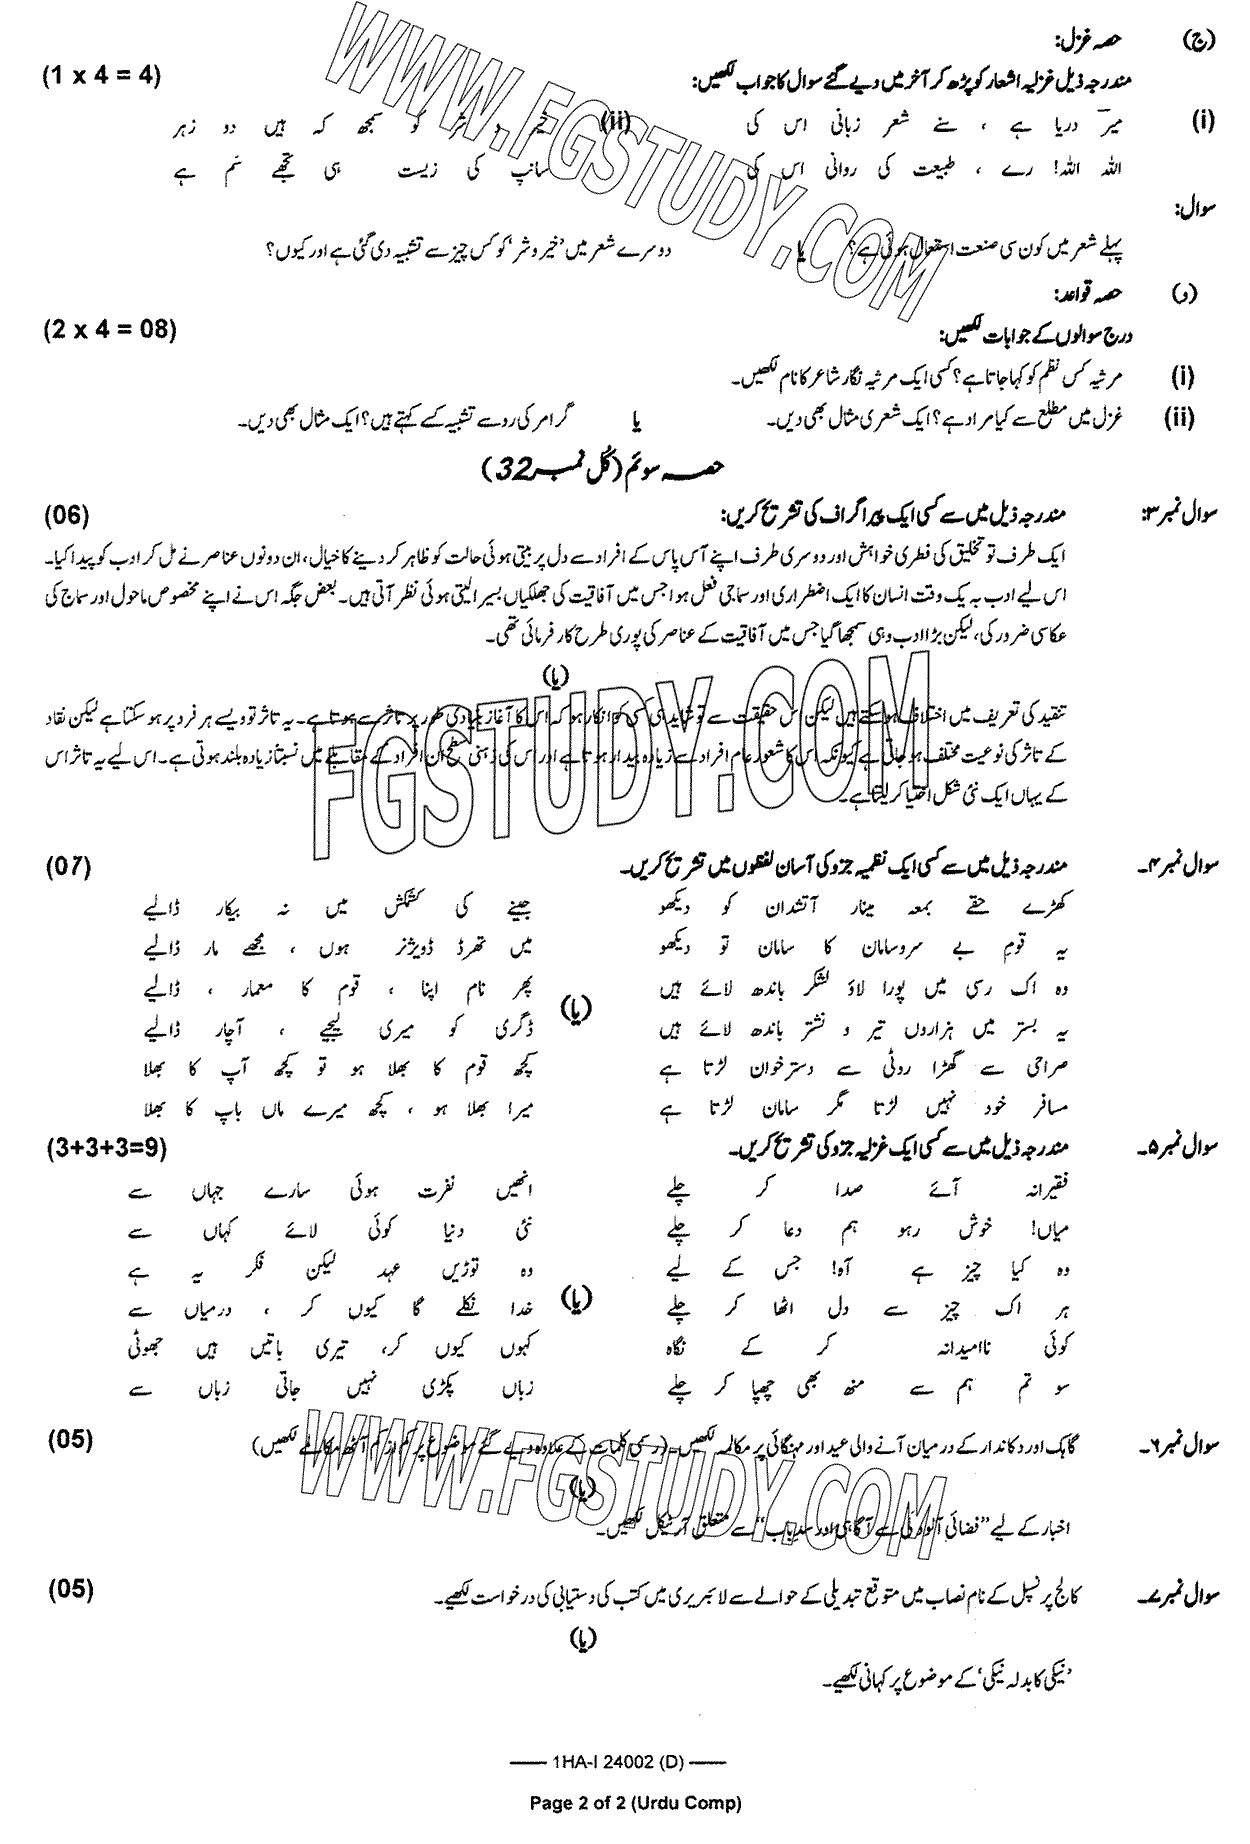 (ج) حصہ غزل:
مندرجہ ذیل غزلیہ اشعار کو پڑھ کر آخر میں دیے گئے سوال کا جواب لکھیں: (1 x 4 = 4)
(i) میرؔ دریا ہے ، سنے شعر زبانی اس کی
اللہ اللہ! رے ، طبیعت کی روانی اس کی
(ii) و کو سمجھ کہ ہیں دو زہر
سانپ کی زیست ہی تجھے سَم ہے
سوال:
پہلے شعر میں کون سی صنعت استعمال ہوئی ہے؟ یا دوسرے شعر میں 'خیر و شر' کو کس چیز سے تشبیہ دی گئی ہے اور کیوں؟
(د) حصہ قواعد:
درج سوالوں کے جوابات لکھیں: (2 x 4 = 08)
(i) مرثیہ کس نظم کو کہا جاتا ہے؟ کسی ایک مرثیہ نگار شاعر کا نام لکھیں۔
(ii) غزل میں مطلع سے کیا مراد ہے؟ ایک شعری مثال بھی دیں۔ یا گرامر کی رو سے تشبیہ کسے کہتے ہیں؟ ایک مثال بھی دیں۔
حصہ سوئم (کُل نمبر 32)
سوال نمبر ۳: مندرجہ ذیل میں سے کسی ایک پیراگراف کی تشریح کریں: (06)
ایک طرف تو تخلیق کی فطری خواہش اور دوسری طرف اپنے آس پاس کے افراد سے دل پر بیتی ہوئی حالت کو ظاہر کر دینے کا خیال، ان دونوں عناصر نے مل کر ادب کو پیدا کیا۔
اس لیے ادب بہ یک وقت انسان کا ایک اضطراری اور سماجی فعل ہوا جس میں آفاقیت کی جھلکیاں بسیرا لیتی ہوئی نظر آتی ہیں۔ بعض جگہ اس نے اپنے مخصوص ماحول اور سماج کی
عکاسی ضرور کی، لیکن بڑا ادب وہی سمجھا گیا جس میں آفاقیت کے عناصر کی پوری طرح کار فرمائی تھی۔
(یا)
تنقید کی تعریف میں اختلاف ہو سکتے ہیں لیکن اس حقیقت سے تو شاید ہی کسی کو انکار ہو کہ اس کا آغاز بنیادی طور پر تاثر سے ہوتا ہے۔ یہ تاثر تو ویسے ہر فرد پر ہو سکتا ہے لیکن نقاد
کے تاثر کی نوعیت مختلف ہو جاتی ہے کیونکہ اس کا شعور عام افراد سے زیادہ بیدار ہوتا ہے اور اس کی ذہنی سطح ان افراد کے مقابلے میں نسبتاً زیادہ بلند ہوتی ہے۔ اس لیے یہ تاثر اس
کے یہاں ایک نئی شکل اختیار کر لیتا ہے۔
سوال نمبر ۴۔ مندرجہ ذیل میں سے کسی ایک نظمیہ جزو کی آسان لفظوں میں تشریح کریں۔ (07)
کھڑے حقے بمعہ مینار آتشدان کو دیکھو
یہ قوم بے سروسامان کا سامان تو دیکھو
وہ اک رسی میں پورا لاؤ لشکر باندھ لائے ہیں
یہ بستر میں ہزاروں تیر و نشتر باندھ لائے ہیں
صراحی سے گھڑا روٹی سے دسترخوان لڑتا ہے
مسافر خود نہیں لڑتا مگر سامان لڑتا ہے
(یا)
جینے کی کشمکش میں نہ بیکار ڈالیے
میں تھرڈ ڈویژنر ہوں ، مجھے مار ڈالیے
پھر نام اپنا ، قوم کا معمار ، ڈالیے
ڈگری کو میری لیجیے ، آچار ڈالیے
کچھ قوم کا بھلا ہو تو کچھ آپ کا بھلا
میرا بھلا ہو ، کچھ میرے ماں باپ کا بھلا
سوال نمبر ۵۔ مندرجہ ذیل میں سے کسی ایک غزلیہ جزو کی تشریح کریں۔ (3+3+3=9)
فقیرانہ آئے صدا کر چلے
میاں! خوش رہو ہم دعا کر چلے
وہ کیا چیز ہے آہ! جس کے لیے
ہر اک چیز سے دل اٹھا کر چلے
کوئی ناامیدانہ کر کے نگاہ
سو تم ہم سے منھ بھی چھپا کر چلے
(یا)
انھیں نفرت ہوئی سارے جہاں سے
نئی دنیا کوئی لائے کہاں سے
وہ توڑیں عہد لیکن فکر یہ ہے
خدا نکلے گا کیوں کر ، درمیاں سے
کہوں کیوں کر، تیری باتیں ہیں جھوٹی
زباں پکڑی نہیں جاتی زباں سے
سوال نمبر ۶۔ گاہک اور دکاندار کے درمیان آنے والی عید اور مہنگائی پر مکالمہ لکھیں۔ (رسمی کلمات کے علاوہ دیے گئے موضوع پر کم از کم آٹھ مکالمے لکھیں) (05)
(یا)
اخبار کے لیے "فضائی آلودگی سے آگاہی اور سدِباب" سے متعلق آرٹیکل لکھیں۔
سوال نمبر ۷۔ کالج پرنسپل کے نام نصاب میں متوقع تبدیلی کے حوالے سے لائبریری میں کتب کی دستیابی کی درخواست لکھیے۔ (05)
(یا)
'نیکی کا بدلہ نیکی' کے موضوع پر کہانی لکھیے۔
—— 1HA-I 24002 (D) ——
Page 2 of 2 (Urdu Comp)
WWW.FGSTUDY.COM
FGSTUDY.COM
WWW.FGSTUDY.COM